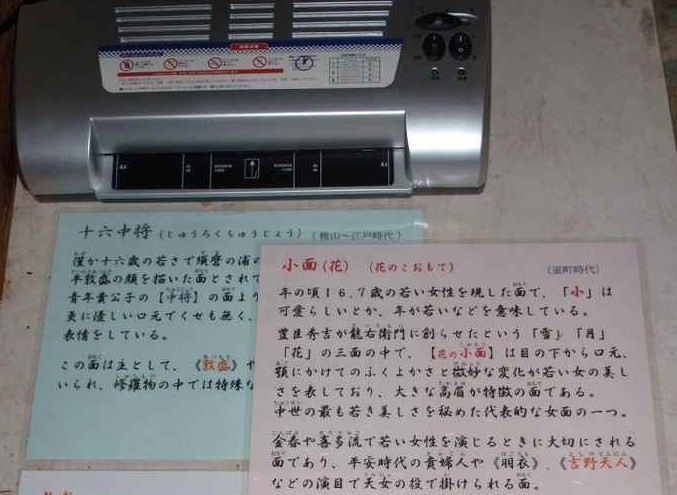 十六中将 (じゅうろくちゅうじょう) (桃山〜江戸時代)
僅か十六歳の若さで須磨の浦の
平敦盛の顔を描いた面とされて
青年貴公子の【中将】の面より
更に優しい口元でくせも無く、
表情をしている。
この面は主として、《敦盛》や
いられ、修羅物の中では特殊な
小面(花) (花のこおもて) (室町時代)
年の頃16.7歳の若い女性を現した面で、「小」は
可愛らしいとか、年が若いなどを意味している。
豊臣秀吉が龍右衛門に創らせたという「雪」「月」
「花」の三面の中で、【花の小面】は目の下から口元、
頬にかけてのふくよかさと微妙な変化が若い女の美し
さを表しており、大きな高眉が特徴の面である。
中世の最も若き美しさを秘めた代表的な女面の一つ。
金春や喜多流で若い女性を演じるときに大切にされる
面であり、平安時代の貴婦人や《羽衣》、《吉野天人》
などの演目で天女の役で掛けられる面。